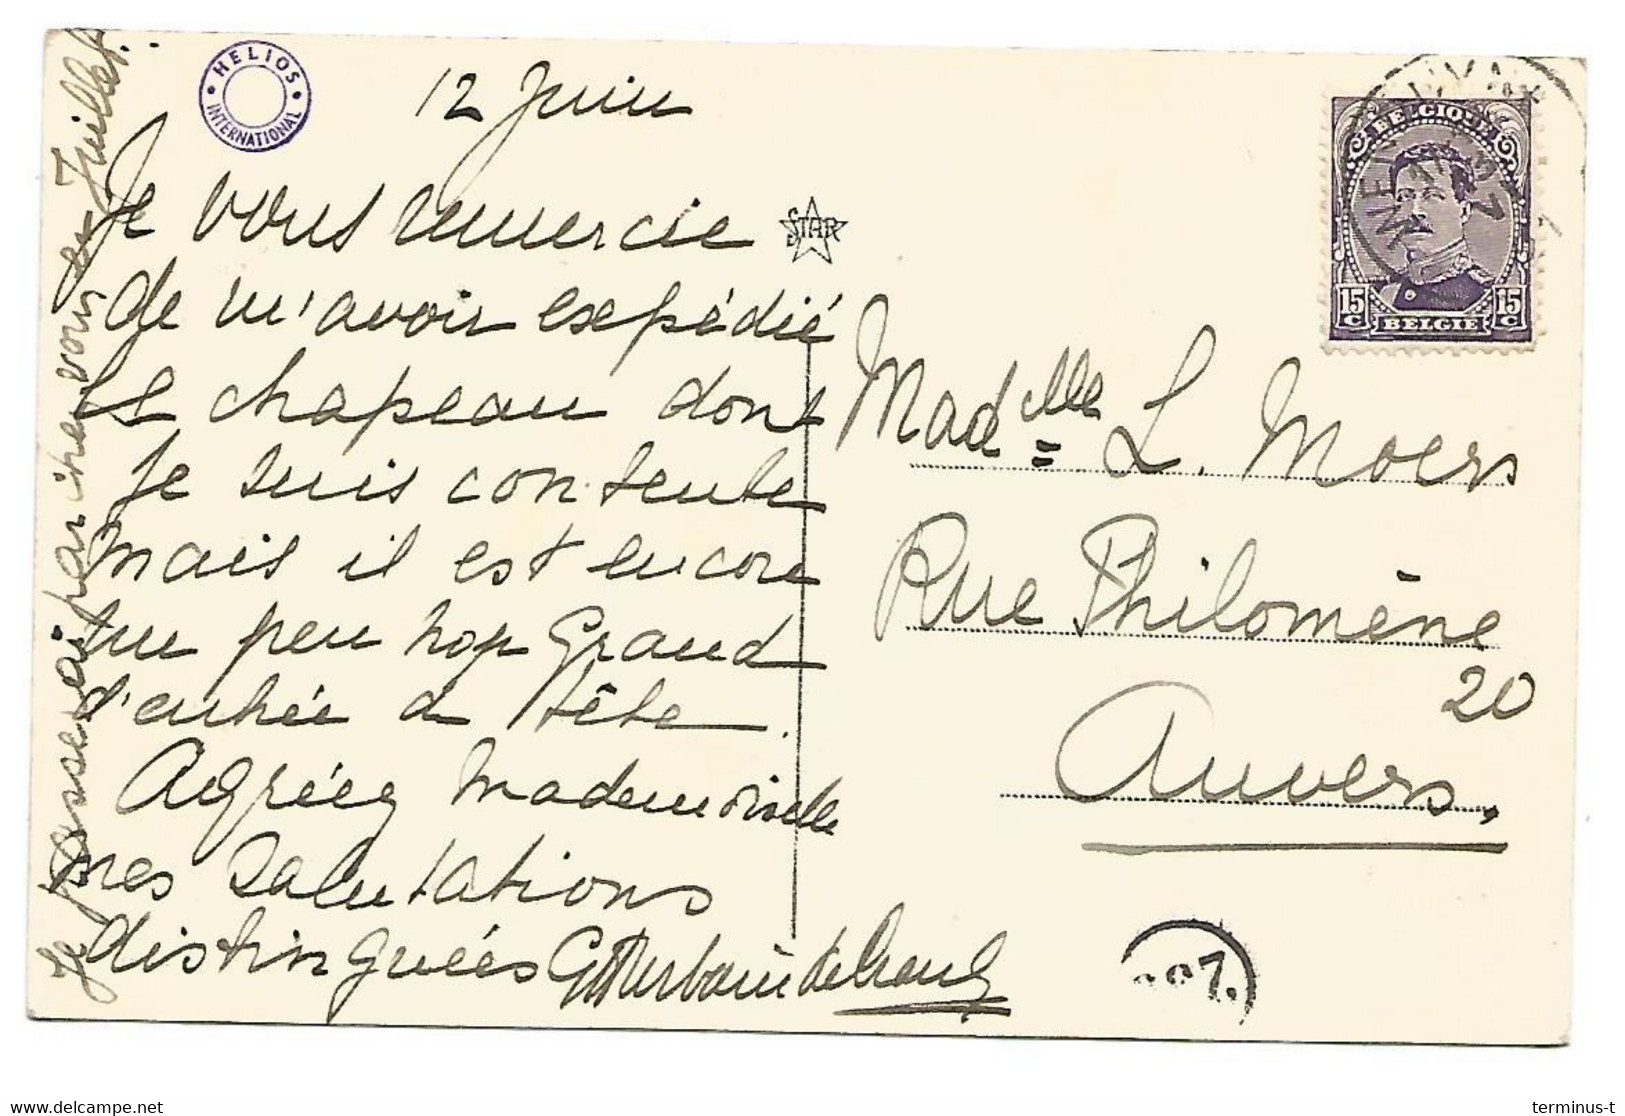 HELIOS
INTERNATIONAL
12 Juin
Je vous remercie
de m'avoir expédié
le chapeau dont
je suis contente
mais il est encore
un peu trop grand
d'entrée de tête.
Agréez Mademoiselle
mes salutations
distinguées
Je passerai par chez vous en Juillet.
STAR
BELGIQUE
15 C
BELGIE
15 C
Madelle L. Moers
Rue Philomène
20
Anvers.
terminus-t